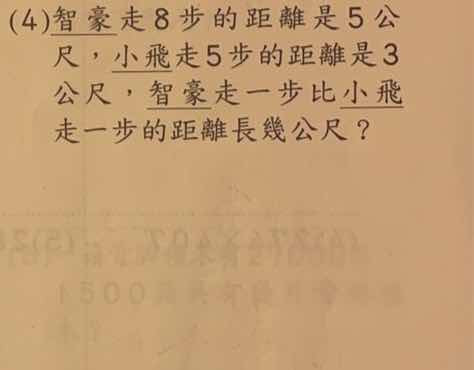 (4)智豪走8步的距離是5公
尺，小飛走5步的距離是3
公尺，智豪走一步比小飛
走一步的距離長幾公尺？